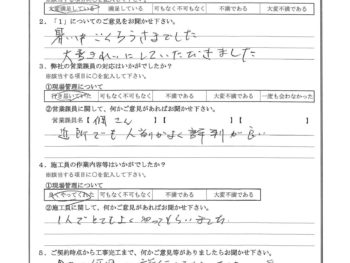 大変満足している 満足している 可も不可もなく 不満である 大変不満である
2．「1」についてのご意見をお聞かせ下さい。
暑い中ごくろうさまでした
大変きれいにしていただきました
3．弊社の営業課員の対応はいかがでしたか？
※該当する項目に○を記入して下さい。
①現場管理について
行き届いていた 可も不可もなく 不満である 大変不満である 一度も会わなかった
②営業課員に関して、何かご意見があればお聞かせ下さい。
営業課員名【 さん 】【 】【 】
近所でも人あたりがよく評判が良い
4．施工員の作業内容等はいかがでしたか？
※該当する項目に○を記入して下さい。
①現場管理について
良くやってくれた 可も不可もなく 不満である 大変不満である
②施工員に関して、何かご意見があればお聞かせ下さい。
1人でとてもよくやってもらいました
5．ご契約時点から工事完工まで、何かご意見等がありましたらお聞かせ下さい。